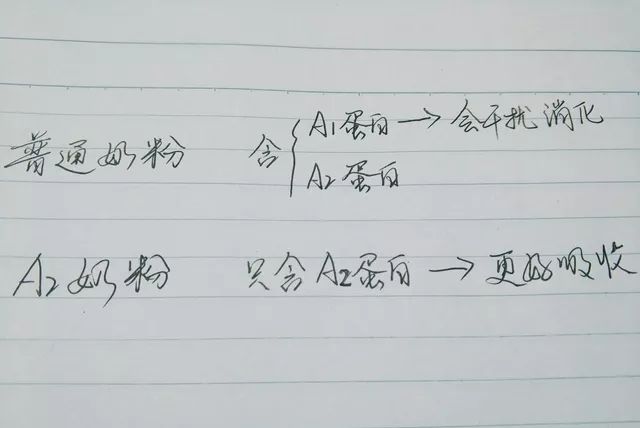 普通奶粉 含 { A1蛋白 → 会干扰消化
A2蛋白
A2奶粉 只含A2蛋白 → 更好吸收